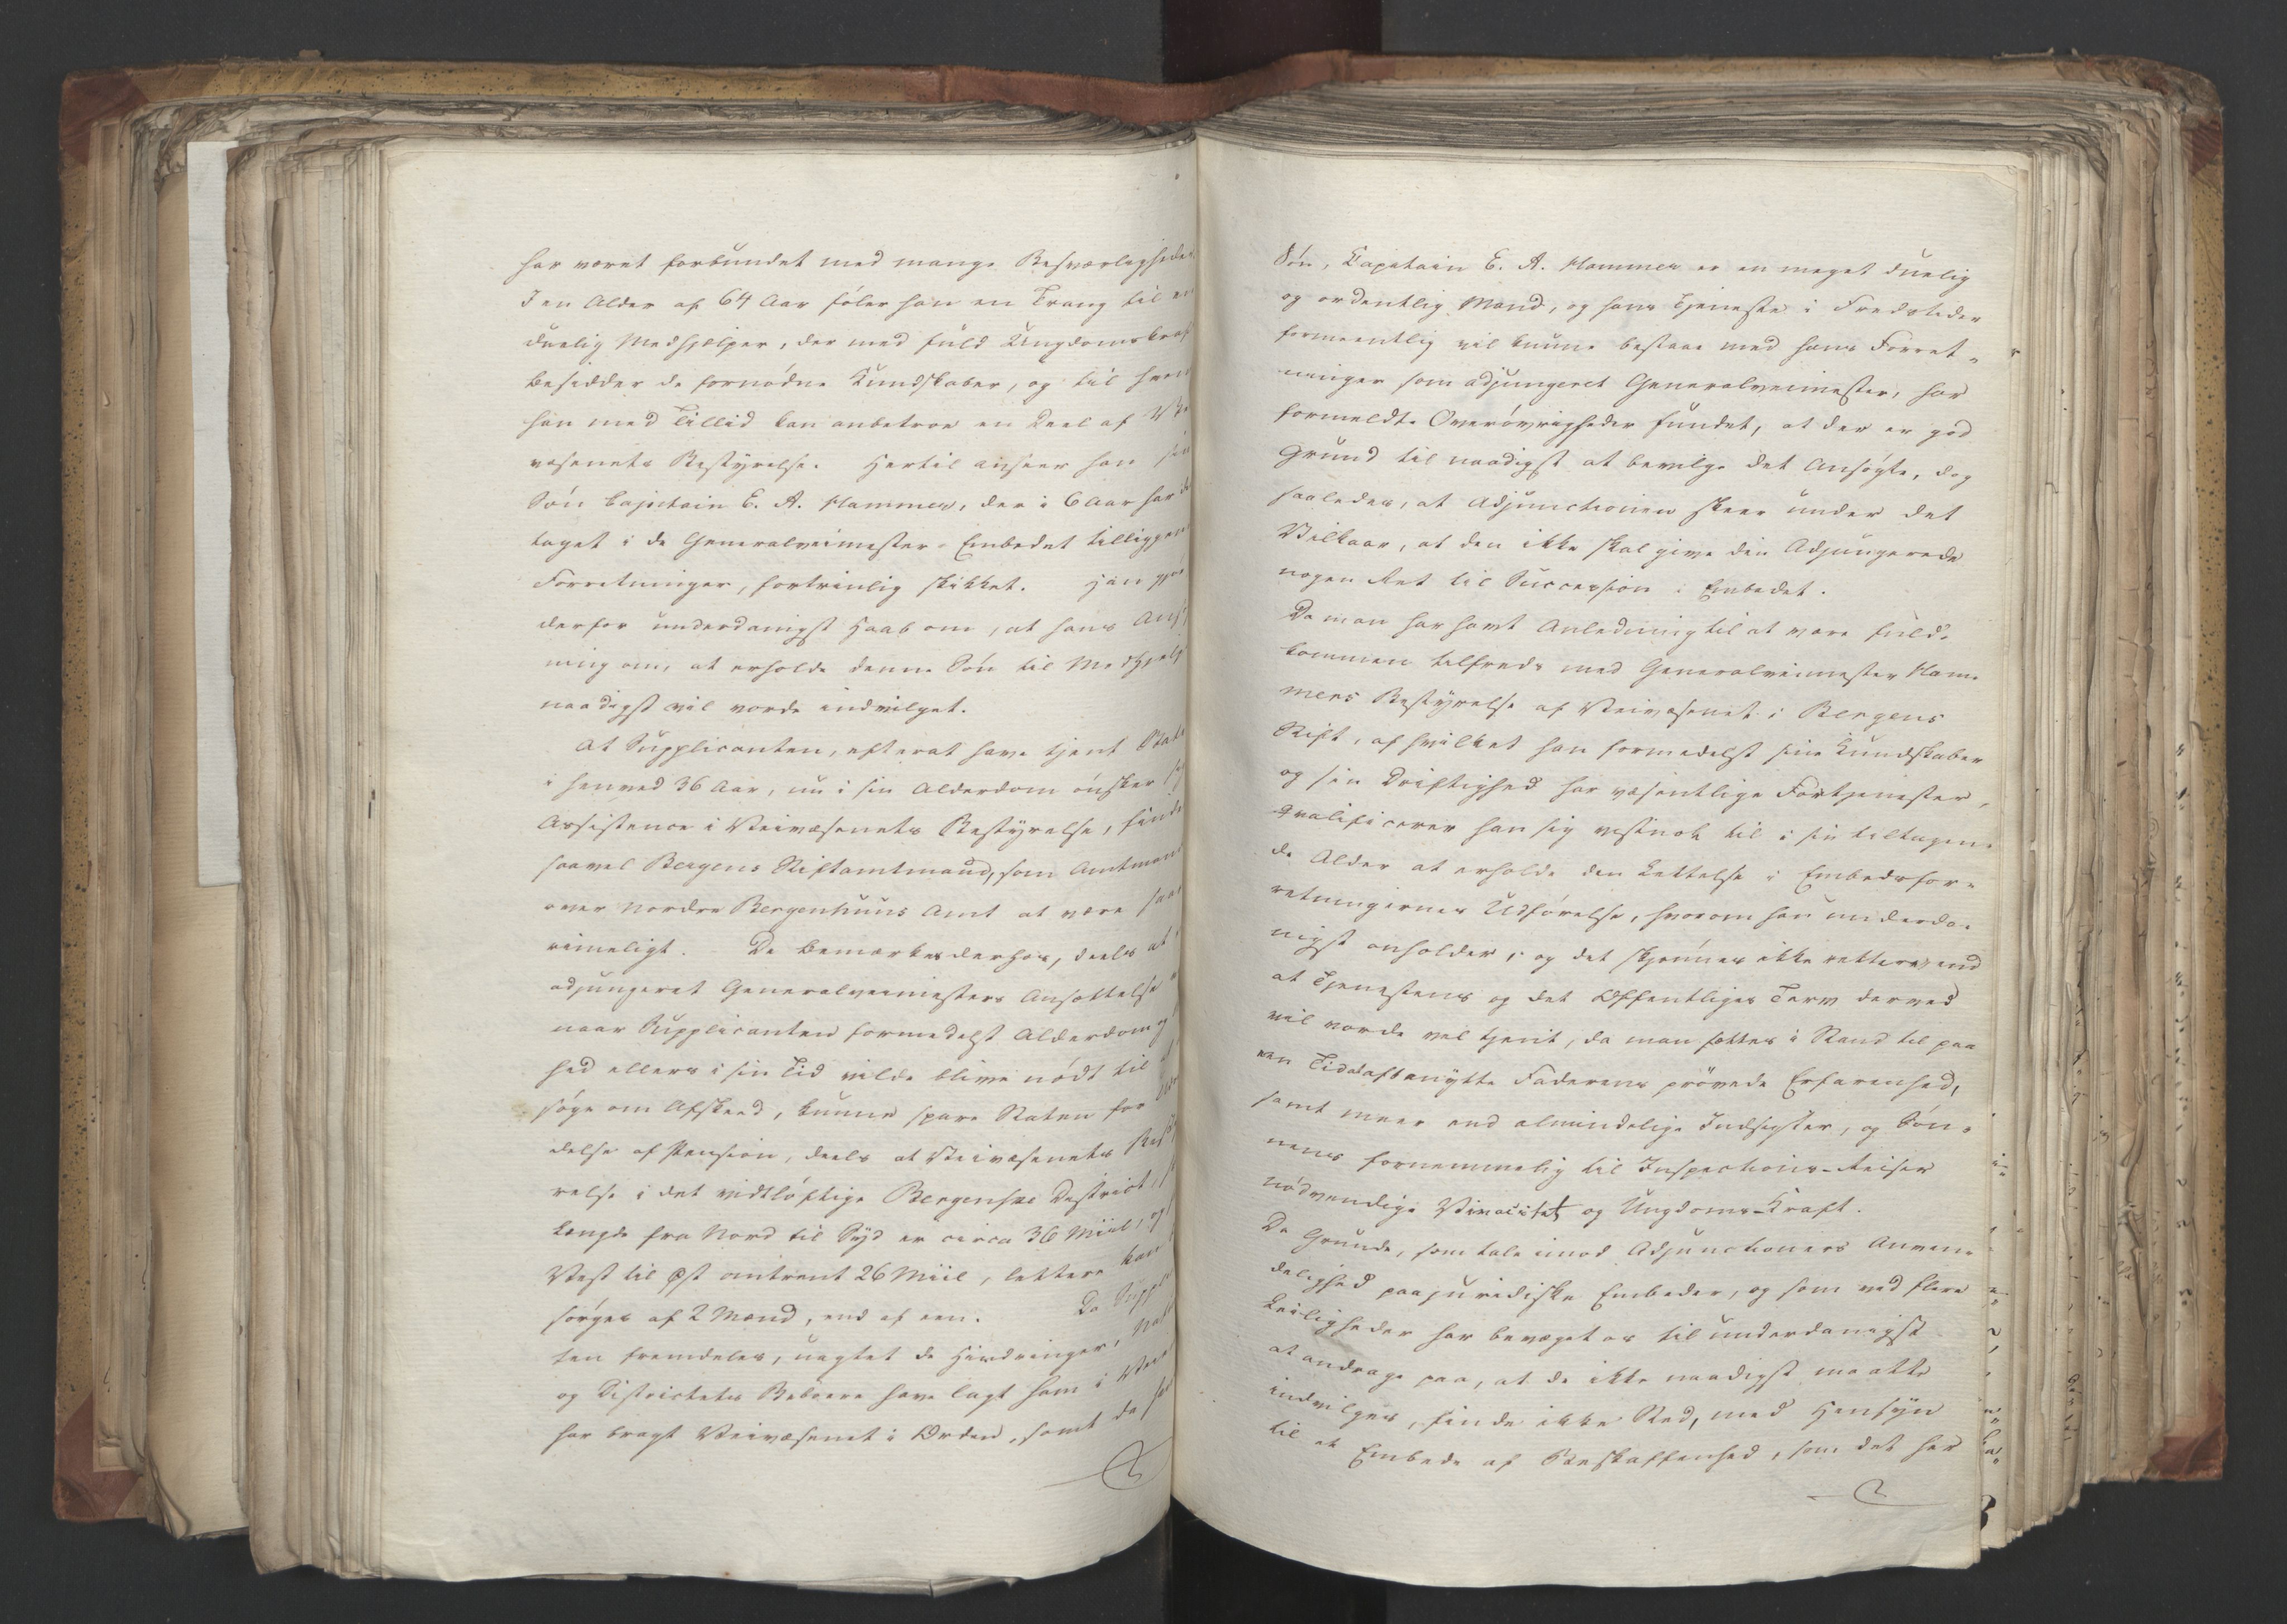 har været forbundet med mange Besværligheder.
I en Alder af 64 Aar føler han en Trang til en
duelig Medhjelper, der med fuld Ungdomskraft
besidder de fornødne Kundskaber, og til hvem
han med Tillid kan anbetroe en Deel af Vei
væsenets Bestyrelse. Hertil anseer han sin
Søn Capitain E. A. Hammer, der i 6 Aar har del
taget i de Generalveimester-Embedet tilliggende
Forretninger, fortrinlig skikket. Han gjør
derfor underdanigst Haab om, at hans Ansøg
ning om, at erholde denne Søn til Medhjelp
naadigst vil vorde indvilget.
At Supplicanten, efterat have tjent Staten
i henved 36 Aar, nu i sin Alderdom ønsker sig
Assistence i Veivæsenets Bestyrelse, finde
saavel Bergens Stiftamtmand, som Amtmand
over Nordre Bergenhuus Amt at være saare
rimeligt. De bemærke derhos, deels at
adjungeret Generalveimesters Ansættelse
naar Supplicanten formedelst Alderdom og
hed ellers i sin Tid vilde blive nødt til at
søge om Afskeed, kunne spare Staten for Ud
delse af Pension, deels at Veivæsenets Besty
relse i det vidtløftige Bergenske District,
Længde fra Nord til Syd er circa 36 Miil, og
Vest til Øst omtrent 26 Miil, lettere kan
sørges af 2 Mænd, end af een. Da Supplican
ten fremdeles, uagtet de Hindringer, Natur
og Districtets Beboere have lagt ham i Veien
har bragt Veivæsenet i Orden, samt da han
Søn, Capitain E. A. Hammer er en meget duelig
og ordentlig Mand, og hans Tjeneste i Fredstider
formeentlig vil kunne bestaae med hans Forret-
ninger som adjungeret Generalveimester, har
formeldte Overøvrigheder fundet, at der er god
Grund til naadigst at bevilge det Ansøgte, dog
saaledes, at Adjunctionen skeer under det
Vilkaar, at den ikke skal give den Adjungerede
nogen Ret til Succession i Embedet.
Da man har havt Anledning til at være fuld-
kommen tilfreds med Generalveimester Ham-
mers Bestyrelse af Veivæsenet i Bergens
Stift, af hvilket han formedelst sine Kundskaber
og sin Driftighed har væsentlige Fortjenester,
qvalificerer han sig vistnok til i sin tiltagen-
de Alder at erholde den Lettelse i Embedsfor-
retningernes Udførelse, hvorom han underda-
nigst anholder, og det skjønnes ikke rettere, end
at Tjenestens og det Offentliges Tarv derved
vil vorde vel tjent, da man sættes i Stand til paa
een Tid at afbenytte Faderens prøvede Erfarenhed,
samt meer end almindelige Indsigter, og Søn-
nens fornemmelig til Inspections-Reiser
nødvendige Vivacitet og Ungdoms-Kraft.
De Grunde, som tale imod Adjunctioners Anven-
delighed paa juridiske Embeder, og som ved flere
Leiligheder har bevæget os til underdanigst
at andrage paa, at de ikke naadigst maatte
indvilges, finde ikke Sted, med Hensyn
til et Embede af Beskaffenhed, som det her